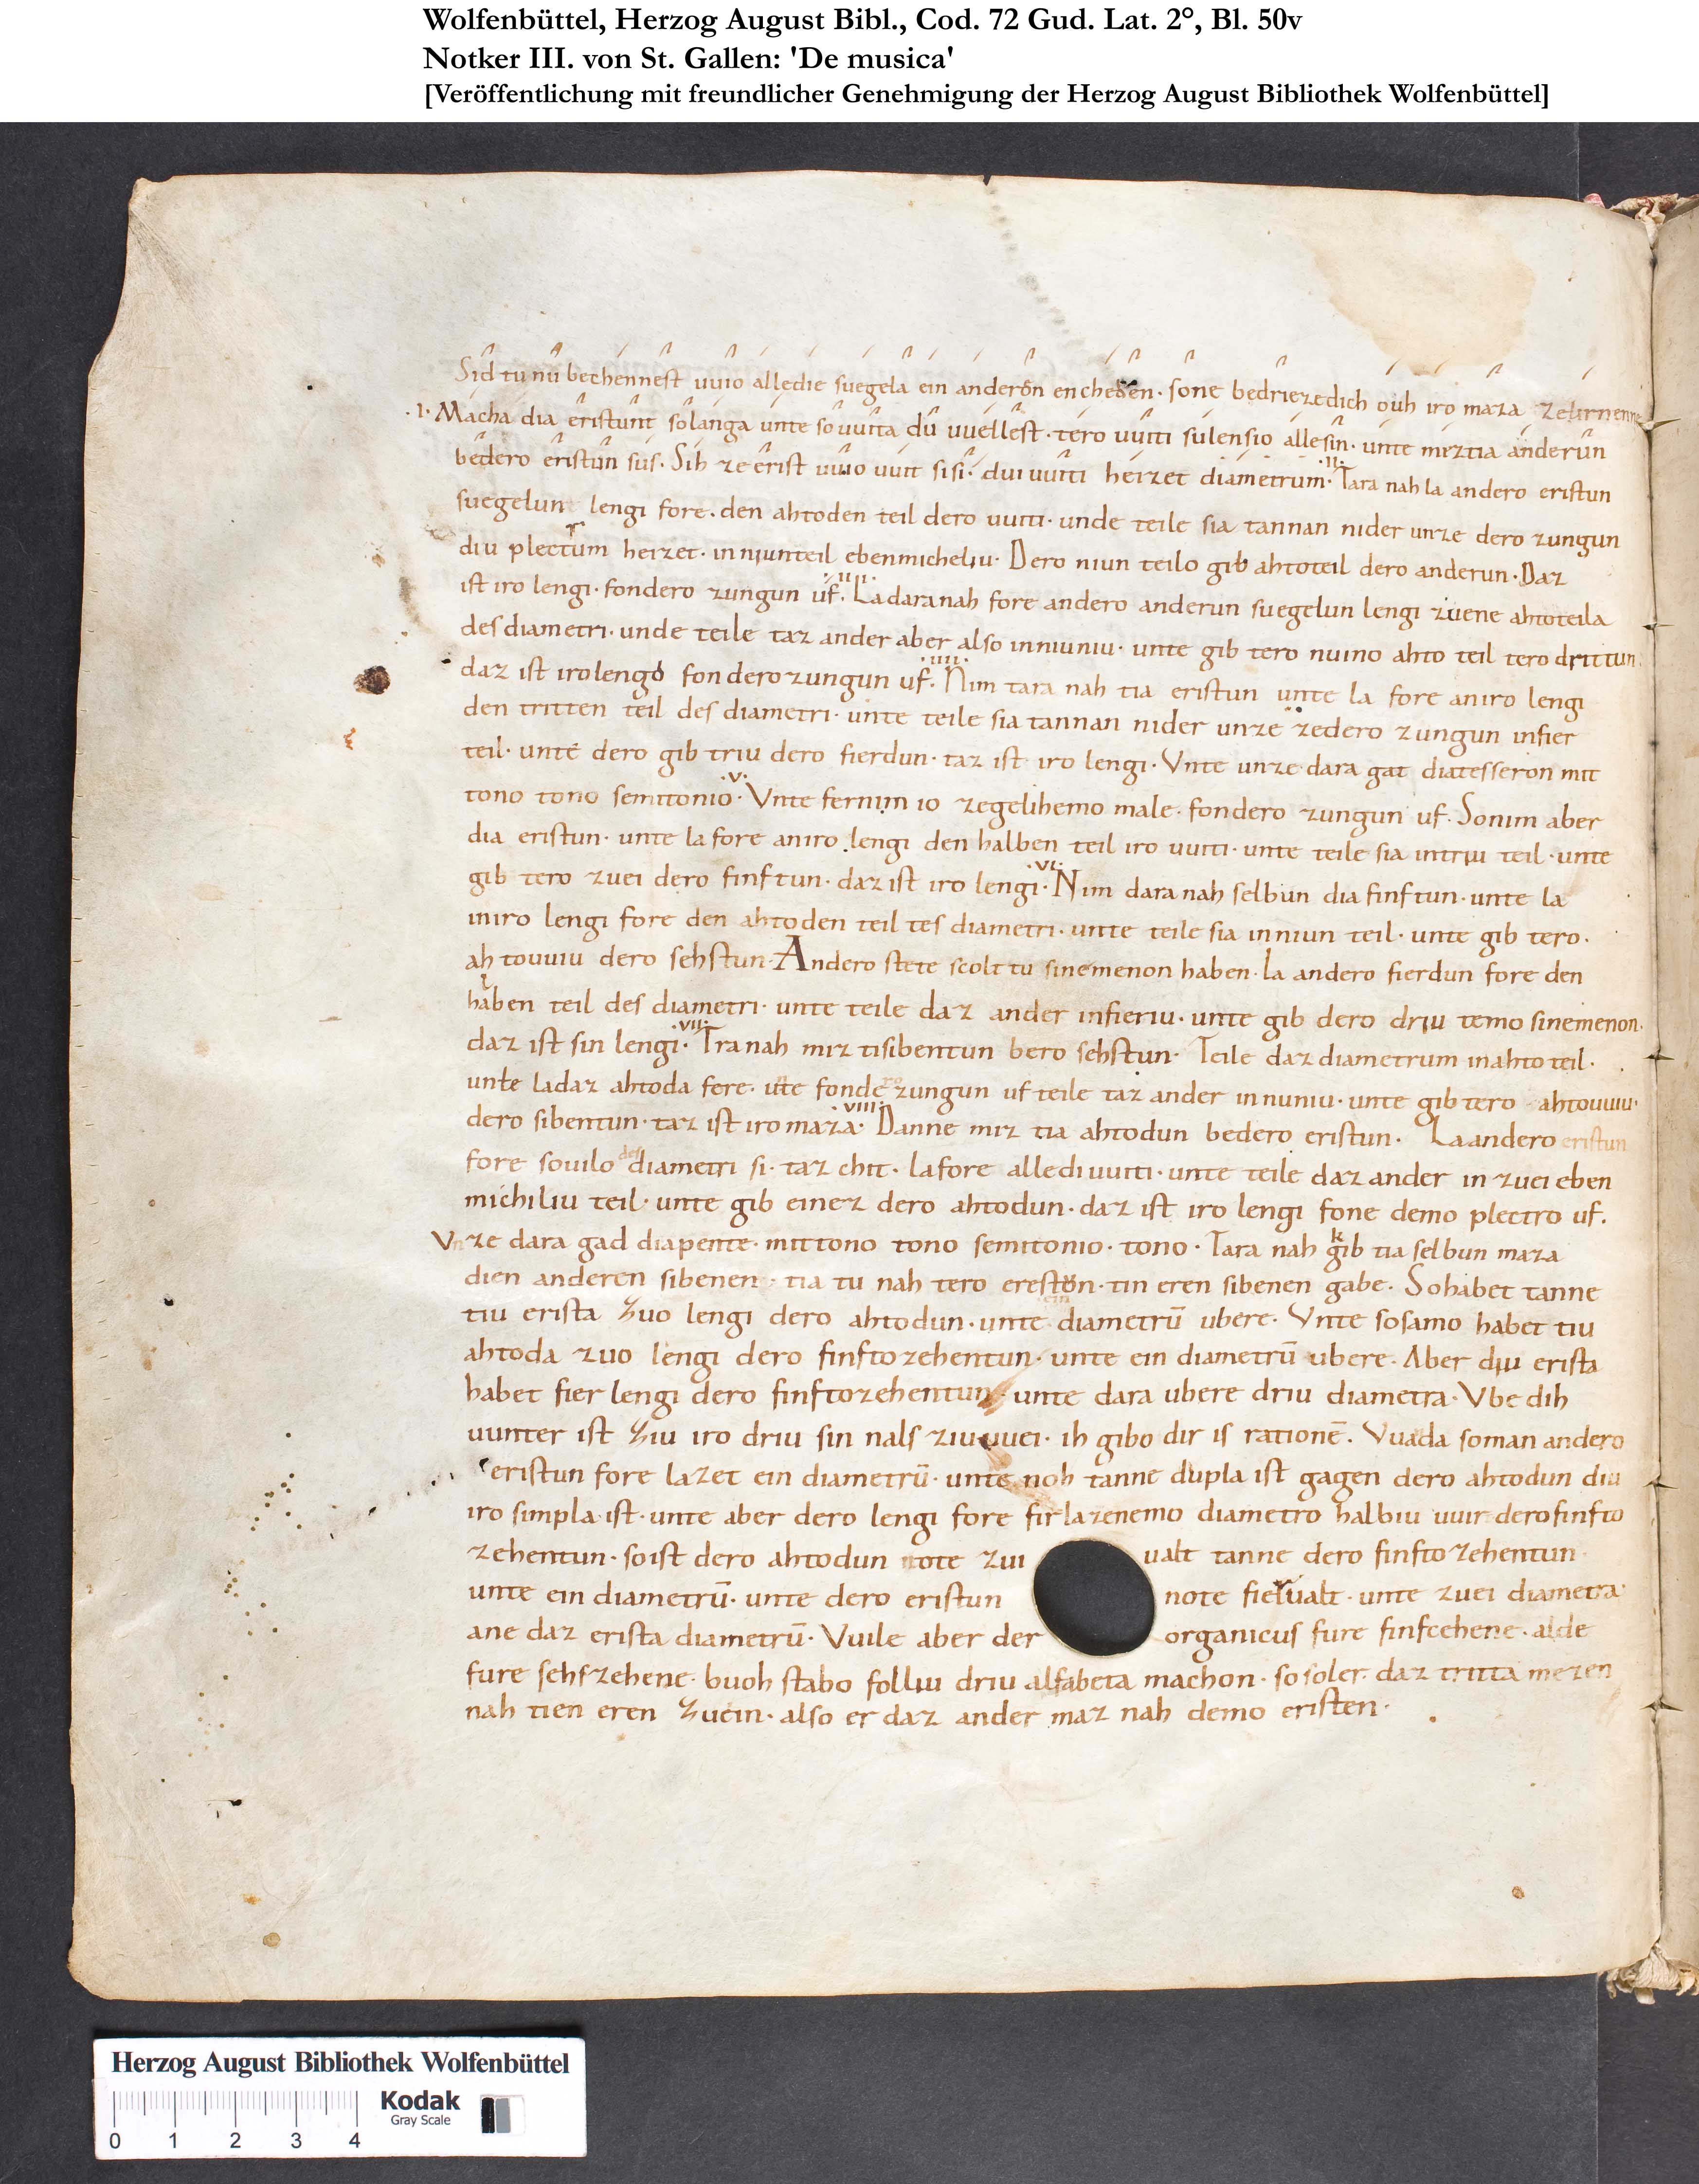 Wolfenbüttel, Herzog August Bibl., Cod. 72 Gud. Lat. 2°, Bl. 50v
Notker III. von St. Gallen: 'De musica'
[Veröffentlichung mit freundlicher Genehmigung der Herzog August Bibliothek Wolfenbüttel]
Sid tu nû bechennest uuio alledie suegela ein anderôn encheden· sone bedriezedich ouh iro maza zelirnenne
·I· Macha dia êristunt sôlanga unte sôuuîta dû uuellest· tero uuîti sulensio allesîn· unte meztia anderûn
bedero êristûn sus· Sih ze êrist uuio uuît sisî· dui uuîti heizet diametrum· ·II· Tara nah la andero eristun
suegelun lengi fore· den ahtoden teil dero uuiti· unde teile sia tannan nider unze dero zungun
diu plectrum heizet· in niunteil ebenmicheliu· Dero niun teilo gib ahtoteil dero anderun· Daz
ist iro lengi· fondero zungun ûf· ·III· Ladaranah fore andero anderun suegelun lengi zuene ahtoteila
des diametri· unde teile taz ander aber also inniuniu· unte gib tero nuino ahto teil tero drittun·
daz ist irolengo fonderozungun uf· ·IIII· Nim tara nah tia eristun unte la fore aniro lengi
den tritten teil des diametri· unte teile sia tannan nider unze zedero zungun infier
teil· unte dero gib triu dero fierdun· taz ist iro lengi· Vnte unze dara gat diatesseron mit
tono tono semitonio· ·V· Vnte fernim io zegelihemo male· fondero zungun uf· Sonim aber
dia eristun· unte la fore aniro lengi den halben teil iro uuiti· unte teile sia intriu teil· unte
gib tero zuei dero finftun· daz ist iro lengi· ·VI· Nim dara nah selbun dia finftun· unte la
iniro lengi fore den ahtoden teil tes diametri· unte teile sia inniun teil· unte gib tero·
ahtouuiu dero sehstun· Andero stete scolt tu sinemenon haben· la andero fierdun fore den
halben teil des diametri· unte teile daz ander infieriu· unte gib dero driu temo sinemenon·
daz ist sin lengi· ·VII· Tranah miz tisibentun bero sehstun· Teile daz diametrum inahto teil·
unte ladaz ahtoda fere· unte fondero zungun uf teile taz ander innuniu· unte gib tero ahtouuiu·
dero sibentun· taz ist iro maza· ·VIII· Danne miz tia ahtodun bedero eristun· Laandero eristun
fore souilo des diametri si· taz chit· lafore alledi uuiti· unte teile daz ander in zuei eben
michiliu teil· unte gib einez dero ahtodun· daz ist iro lengi fone demo plectro uf·
Vnze dara gad diapente· mittono tono semitonio· tono· Tara nah kib tia selbun maza
dien anderen sibenen· tia tu nah tero erestun· tin eren sibenen gabe· Sohabet tanne
tiu erista zuo lengi dero ahtodun· unte ein diametrū ubere· Vnte sosamo habet tiu
ahtoda zuo lengi dero finftozehentun· unte ein diametrū ubere· Aber diu erista
habet fier lengi dero finftozehentun· unte dara ubere driu diametra· Vbe dih
uunter ist ziu iro driu sin nals ziuuuei· ih gibo dir is rationē· Vuada soman andero
eristun fore lazet ein diametrū· unte noh tanne dupla ist gagen dero ahtodun diu
iro simpla ist· unte aber dero lengi fore firlazenemo diametro halbiu uuir derofinfto
zehentun· soist dero ahtodun note zui ualt tanne dero finftozehentun·
unte ein diametrū· unte dero eristun note fierualt· unte zuei diametra·
ane daz erista diametrū· Vuile aber der organicus fure finfcehene· alde
fure sehszehene· buoh stabo folliu driu alfabeta machon· so soler· daz tritta mezen
nah tien eren zuein· also er daz ander maz nah demo eristen·
Herzog August Bibliothek Wolfenbüttel
Kodak
Gray Scale
0 1 2 3 4